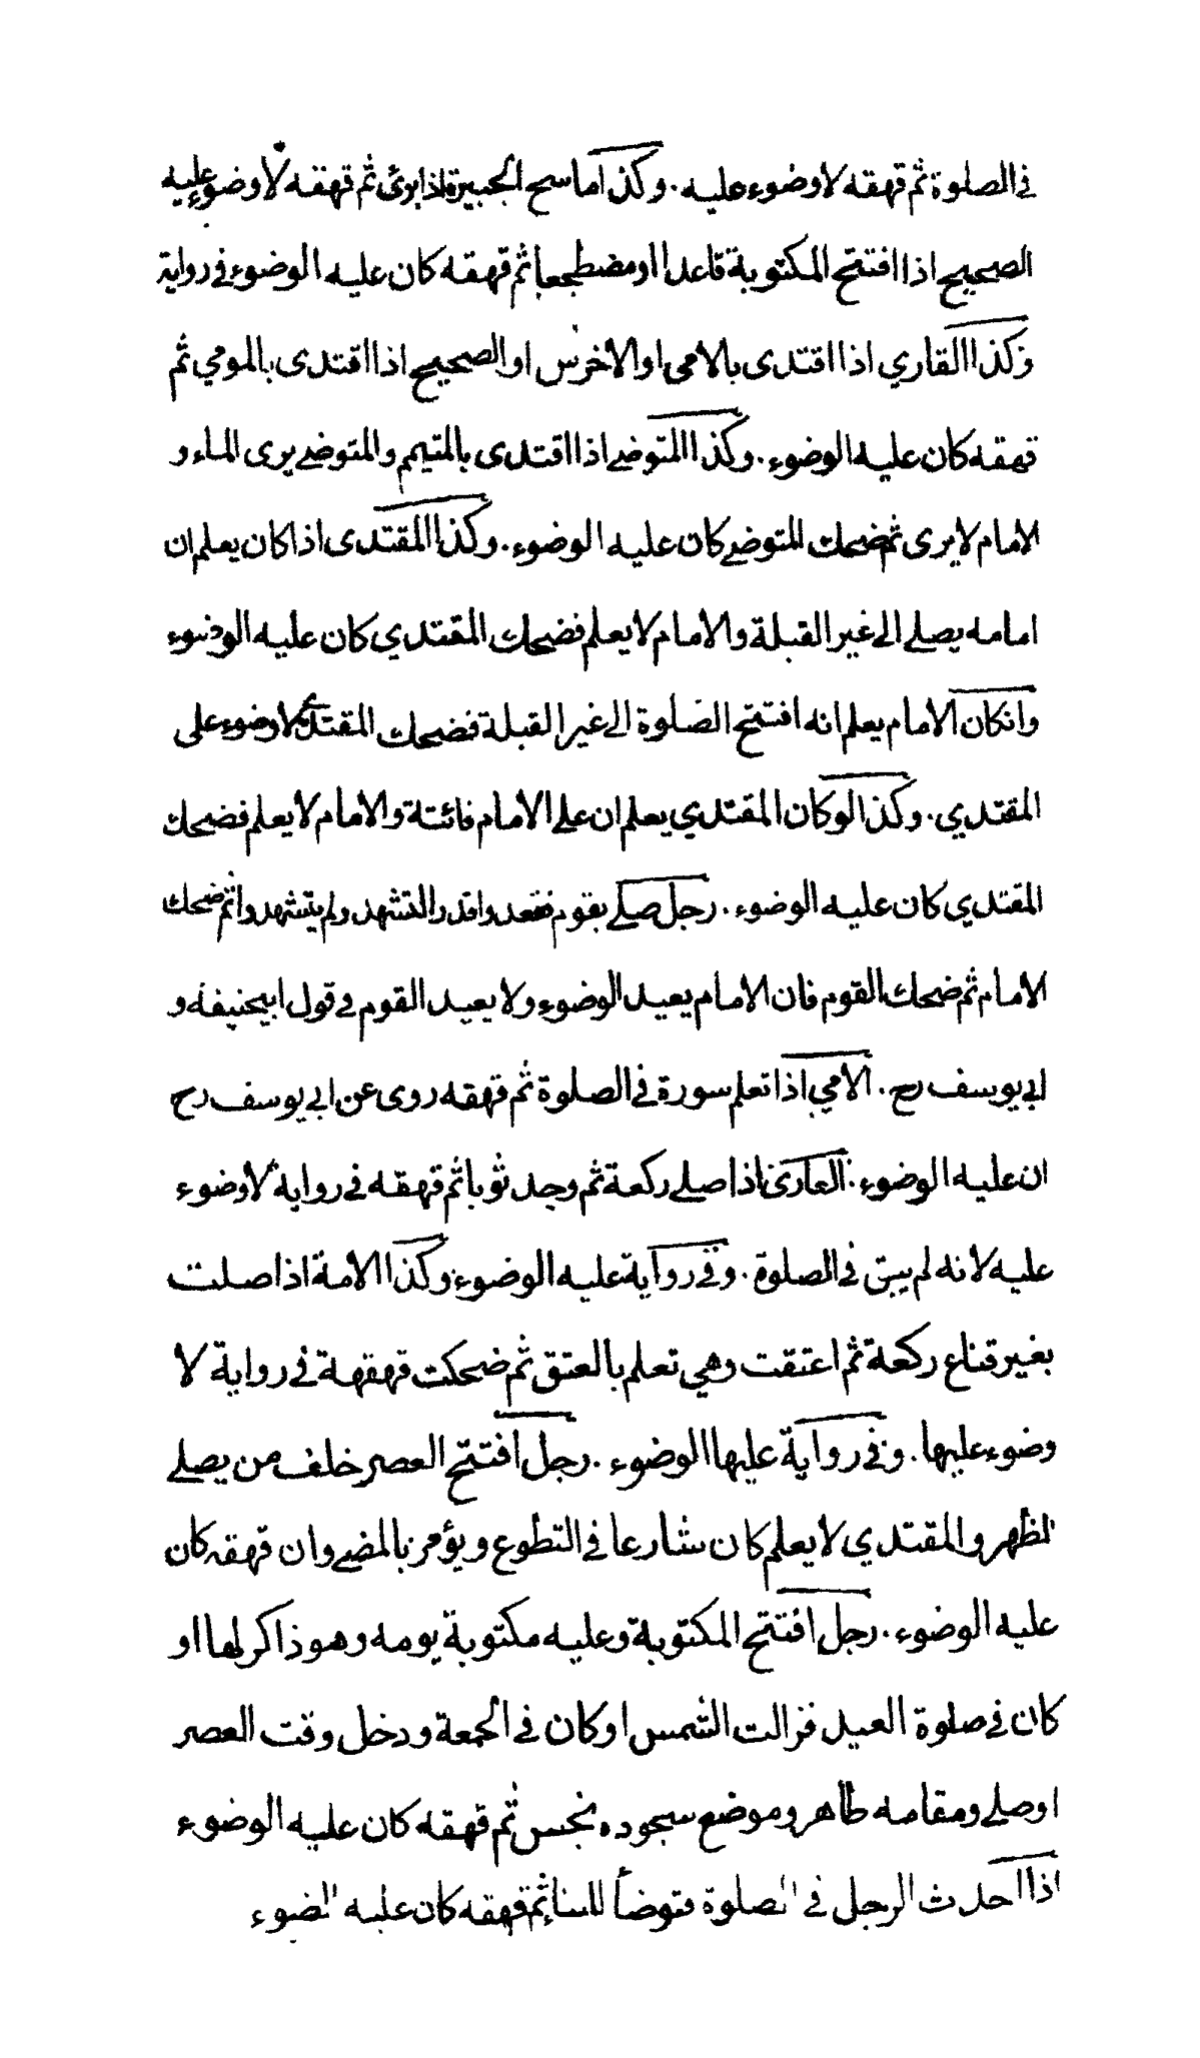 في الصلوة ثم قهقه لا وضوء عليه . وكذا ماسح الجبيرة اذا برئ ثم قهقه لا وضوء عليه
الصحيح اذا افتتح المكتوبة قاعدا او مضطجعا ثم قهقه كان عليه الوضوء في رواية
وكذا القاري اذا اقتدى بالامي او الاخرس او الصحيح اذا اقتدى بالمومي ثم
قهقه كان عليه الوضوء . وكذا المتوضي اذا اقتدى بالمتيمم والمتوضي يرى الماء و
الامام لا يرى ثم ضحك المتوضي كان عليه الوضوء . وكذا المقتدى اذا كان يعلم ان
امامه يصلي الى غير القبلة والامام لا يعلم فضحك المقتدي كان عليه الوضوء
وانكان الامام يعلم انه افتتح الصلوة الى غير القبلة فضحك المقتدي لا وضوء على
المقتدي . وكذا لو كان المقتدي يعلم ان على الامام فائتة والامام لا يعلم فضحك
المقتدي كان عليه الوضوء . رجل صلى بقوم فقعدوا قدر التشهد ولم يتشهدوا ثم ضحك
الامام ثم ضحك القوم فان الامام يعيد الوضوء ولا يعيد القوم في قول ابيحنيفة و
ابي يوسف رح . الامي اذا تعلم سورة في الصلوة ثم قهقه روى عن ابي يوسف رح
ان عليه الوضوء . العاري اذا صلى ركعة ثم وجد ثوبا ثم قهقه في رواية لا وضوء
عليه لانه لم يبق في الصلوة . وفي رواية عليه الوضوء وكذا الامة اذا صلت
بغير قناع ركعة ثم اعتقت وهي تعلم بالعتق ثم ضحكت قهقهة في رواية لا
وضوء عليها . وفي رواية عليها الوضوء . رجل افتتح العصر خلف من يصلي
الظهر والمقتدي لا يعلم كان شارعا في التطوع ويؤمر بالمضي وان قهقه كان
عليه الوضوء . رجل افتتح المكتوبة وعليه مكتوبة يومه وهو ذاكر لها او
كان في صلوة العيد فزالت الشمس او كان في الجمعة ودخل وقت العصر
او صلى ومقامه طاهر وموضع سجوده نجس ثم قهقه كان عليه الوضوء
اذا احدث الرجل في الصلوة فتوضأ للبناء ثم قهقه كان عليه الوضوء